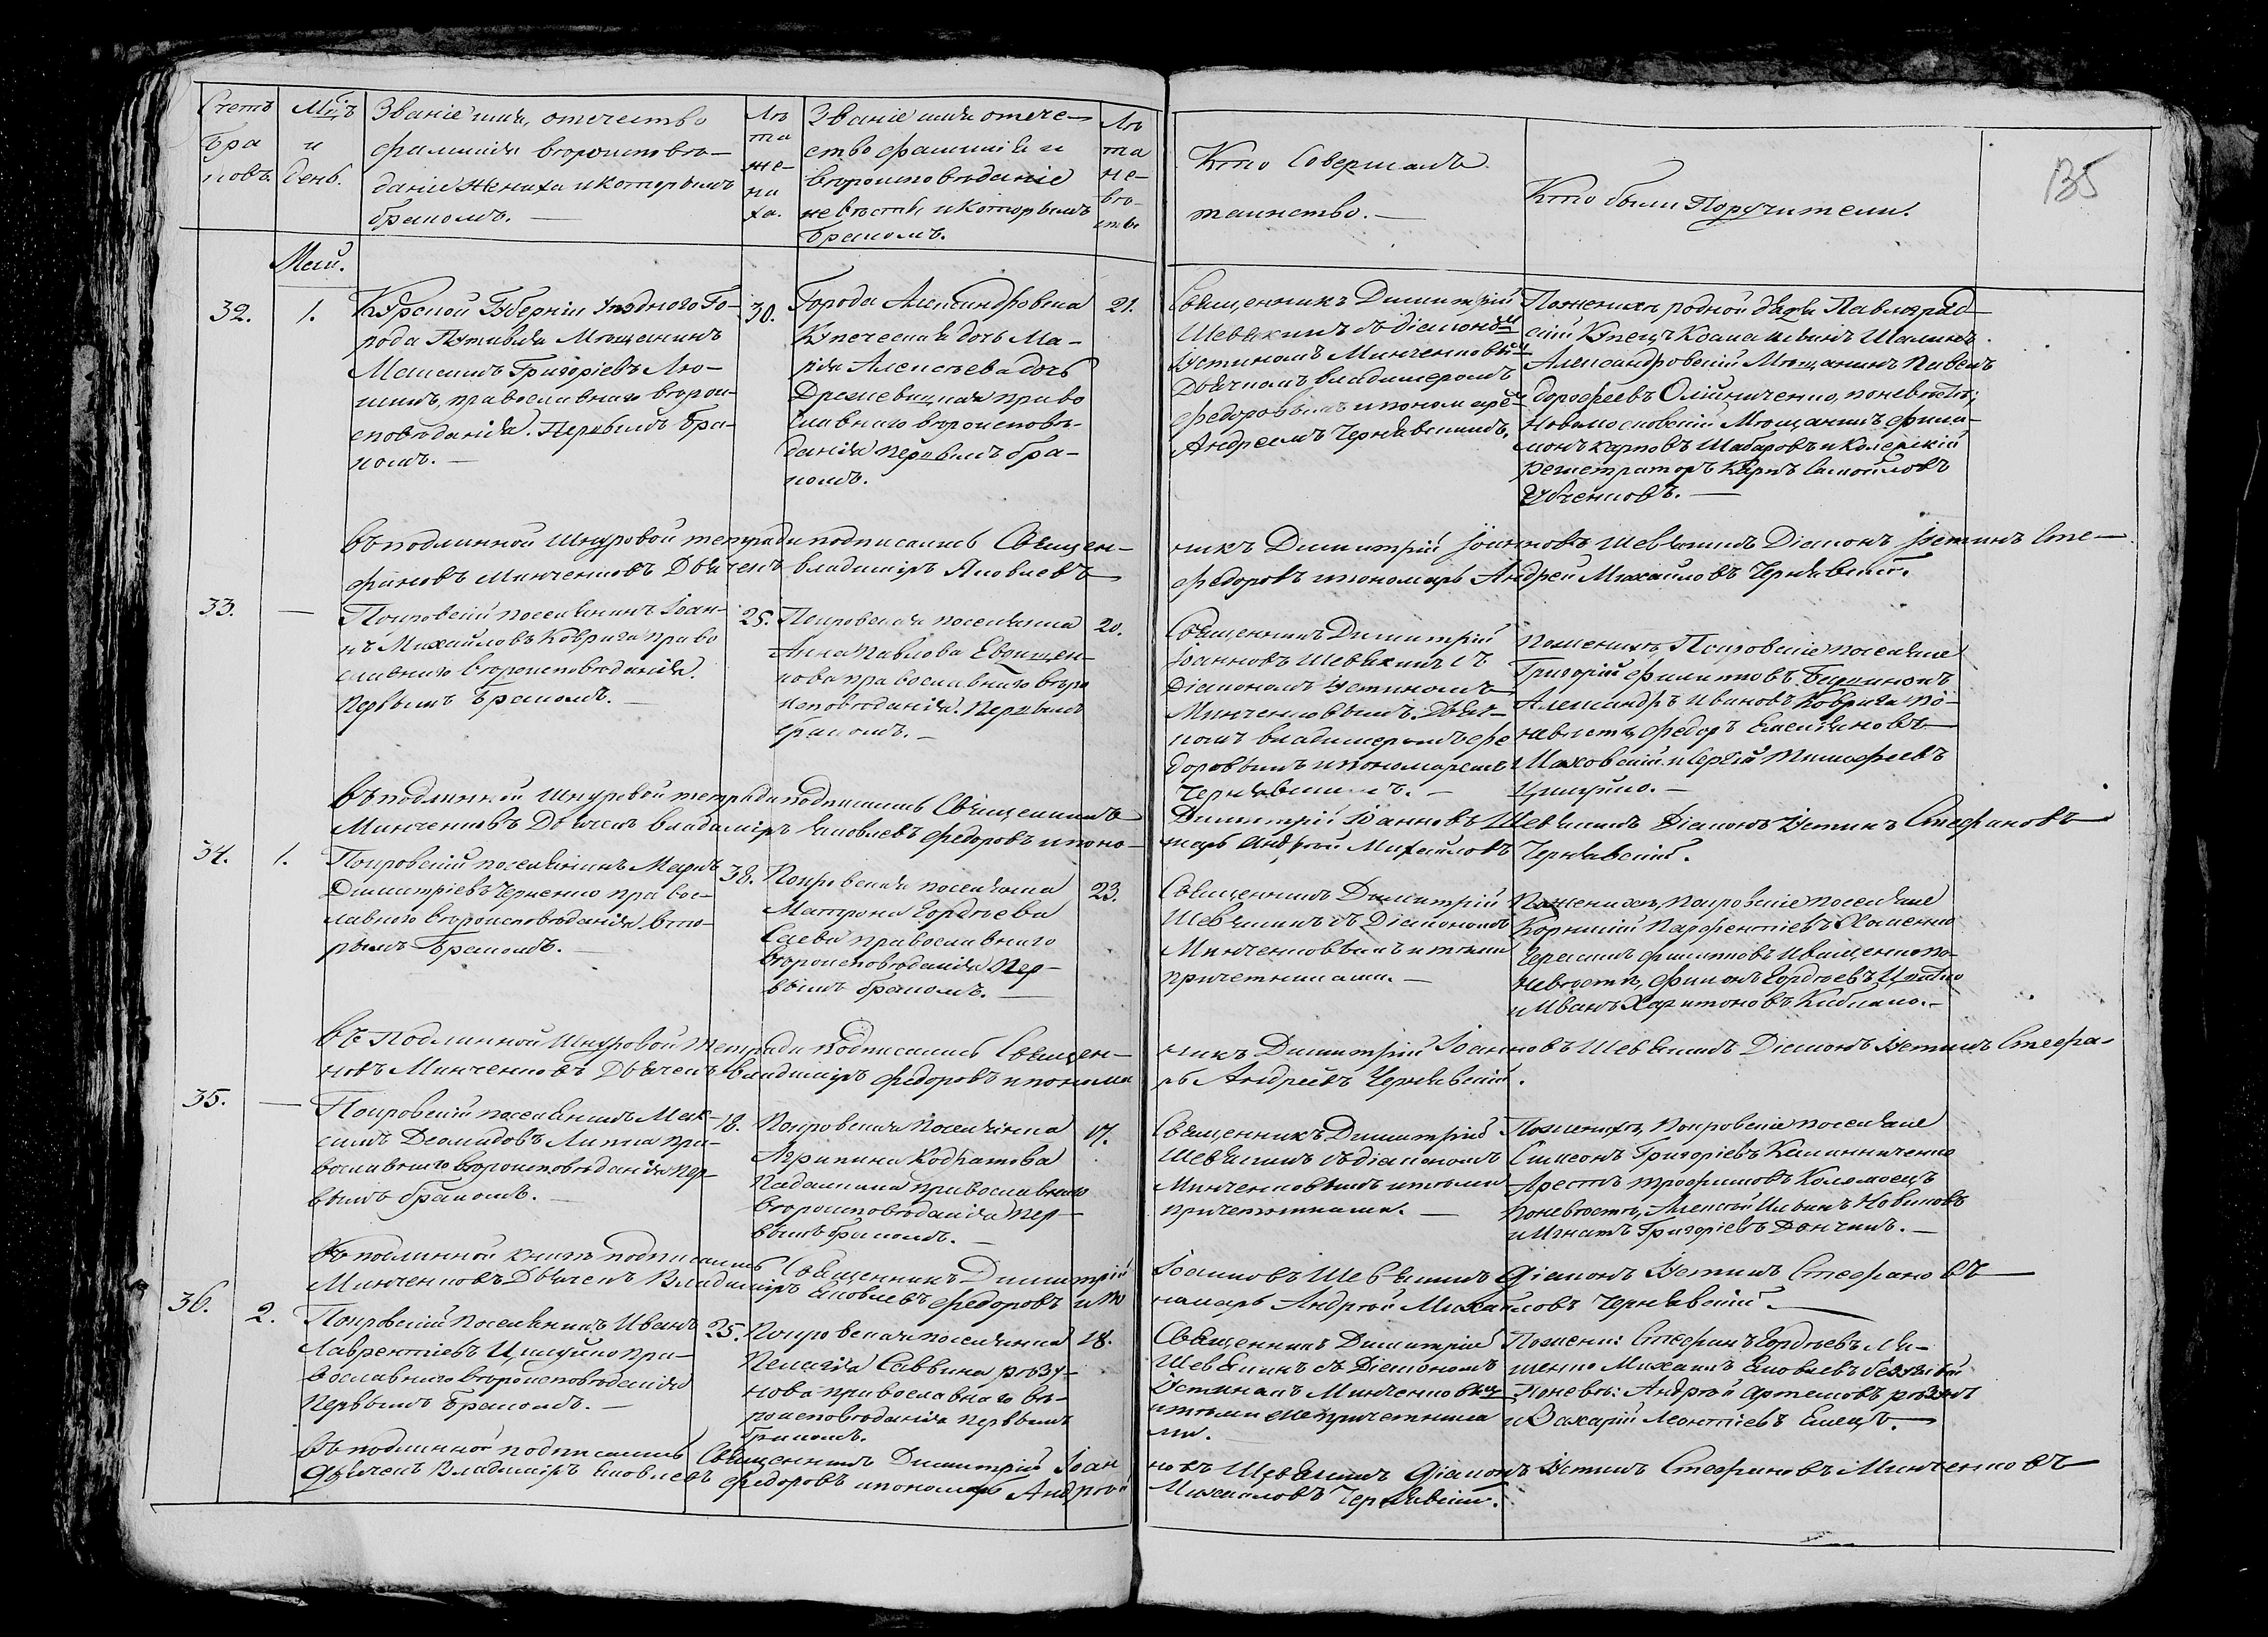 Счетъ бра ковъ.
Мцъ и день.
Званіе имя, отечество
фамилія вѣроисповѣ-
даніе жениха и которымъ
бракомъ. —
Лѣ та же- ни ха.
Званіе имя отече-
ство фамилія и
вѣроисповѣданіе
невѣсты, и которымъ
бракомъ.
Лѣ та не- вѣ- сты
Кто совершалъ
таинство. —
Кто были Поручители.
135
Май.
32.
1.
Курской Губерніи уѣздного Го-
рода Путивля Мещанинъ
Максимъ Григоріевъ
православнаго вѣроис-
повѣданія. Первымъ бра-
комъ. —
30.
Города Александровска
Купеческая дочь Ма-
рія Алексѣева дочь
право
славнаго вѣроисповѣ-
данія первымъ бра-
комъ.
21.
Священникъ Димитрій
Шевякинъ съ діакономъ
Іустиномъ Минченковымъ
Дьячкомъ Владимеромъ
Федоровымъ и пономаре
Андреемъ Чернявскимъ.
По женихѣ родной дядя Павлоград-
скій Купецъ Козма
Александровскій Мещанинъ Павелъ
Дорофеевъ Олійниченко, по невѣстѣ;
Новомосковскій Мещанинъ Фили-
монъ Карповъ Шабаровъ и Колежскій
Регистраторъ Карпъ Самойловъ
въ подлинной Шнуровой тетради подписались Священ-
никъ Димитрій Іоанновъ Шевякинъ Діаконъ Іустинъ Сте-
фановъ Минченковъ Дьячекъ Владимиръ Яковлевъ
Федоровъ и пономарь Андрей Михайловъ Чернявскій.
33.
—
Покровскій поселянинъ Іоан-
нъ Михайловъ Коврига право
славнаго вѣроисповѣданія.
Первымъ бракомъ. —
25.
Покровская поселянка
Анна Павлова Евдищен-
кова православнаго вѣро
исповѣданія. Первымъ
бракомъ. —
20.
Священникъ Димитрій
Іоанновъ Шевякинъ съ
Діакономъ Іустиномъ
Минченковымъ. Дьяч-
комъ Владимеромъ Фе
доровымъ и пономаремъ
Чернявскимъ. —
По женихѣ, Покровскіе поселяне
Григорій Филиповъ
Александръ Ивановъ Коврига по-
невѣстѣ, Федоръ Емельяновъ
Маховскій и Сергій Тимофеевъ
въ подлинной Шнуровой тетради подписались Священникъ
Димитрій Іоанновъ Шевякинъ Діаконъ Іустинъ Стефановъ
Минченковъ Дьячекъ Владимиръ Яковлевъ Федоровъ и поно-
марь Андрей Михайловъ Чернявскій.
34.
1.
Покровскій поселянинъ Маркъ
Димитріевъ Черненко правос-
лавнаго вѣроисповѣданія вто-
рымъ бракомъ. —
38.
Покровская поселянка
Матрона Гордѣева
Саева православнаго
вѣроисповѣданія Пер-
вымъ бракомъ. —
23.
Священникъ Димитрій
Шевякинъ съ Діакономъ
Минченковымъ и тѣми
причетниками. —
По женихѣ, Покровскіе поселяне
Корнилій Парфентіевъ Хоменко
Герасимъ Филиповъ Иващенко по
невѣстѣ, Филонъ Гордѣевъ
и Иванъ Харитоновъ
Въ Подлинной Шнуровой тетради подписались Священ-
никъ Димитрій Іоанновъ Шевякинъ Діаконъ Іустинъ Стефа-
новъ Минченковъ Дьячекъ Владимиръ Федоровъ и понома
рь Андреевъ Чернявскій.
35.
—
Покровскій поселянинъ Мак-
симъ Деомидовъ Липка пра-
вославнаго вѣроисповѣданія пер-
вымъ бракомъ. —
18.
Покровская поселянка
Агрипина Кодратова
Подалкина православнаго
вѣроисповѣданія пер-
вымъ бракомъ. —
17.
Священникъ Димитрій
Шевякинъ съ діакономъ
Минченковымъ и тѣми
причетниками. —
По женихѣ, Покровскіе поселяне
Симеонъ Григоріевъ Калиниченко
Арестъ Трофимовъ Коломоецъ
По невѣстѣ, Алексѣй Ильинъ Новиковъ
и Игнатъ Григоріевъ Дончикъ. —
Въ подлинной книгѣ подписались Священникъ Димитрій
Іоанновъ Шевякинъ Діаконъ Іустинъ Стефановъ
Минченковъ Дьячекъ Владимиръ Яковлевъ Федоровъ и по
номарь Андрей Михайловъ Чернявскій. —
36.
2.
Покровскій поселянинъ Иванъ
Лаврентіевъ пра-
вославнаго вѣроисповѣданія
Первымъ бракомъ. —
25.
Покровская поселянка
Пелагія Саввина рѣзу-
нова православнаго вѣ-
роисповѣданія первымъ
бракомъ.
18.
Священникъ Димитрій
Шевякинъ съ Діакономъ
Іустиномъ Минченковымъ
и тѣми же причетника
ми.
По жени: Стефанъ Гордѣевъ Ля-
шенко Михаилъ Яковлевъ
По невѣ: Андрей Артемовъ рѣзунъ
и Захарій Леонтіевъ Емецъ. —
въ подлинной подписались Священникъ Димитрій Іоан
новъ Шевякинъ Діаконъ Іустинъ Стефановъ Минченковъ
Дьячекъ Владимиръ Яковлевъ Федоровъ и пономарь Андрей
Михайловъ Чернявскій.